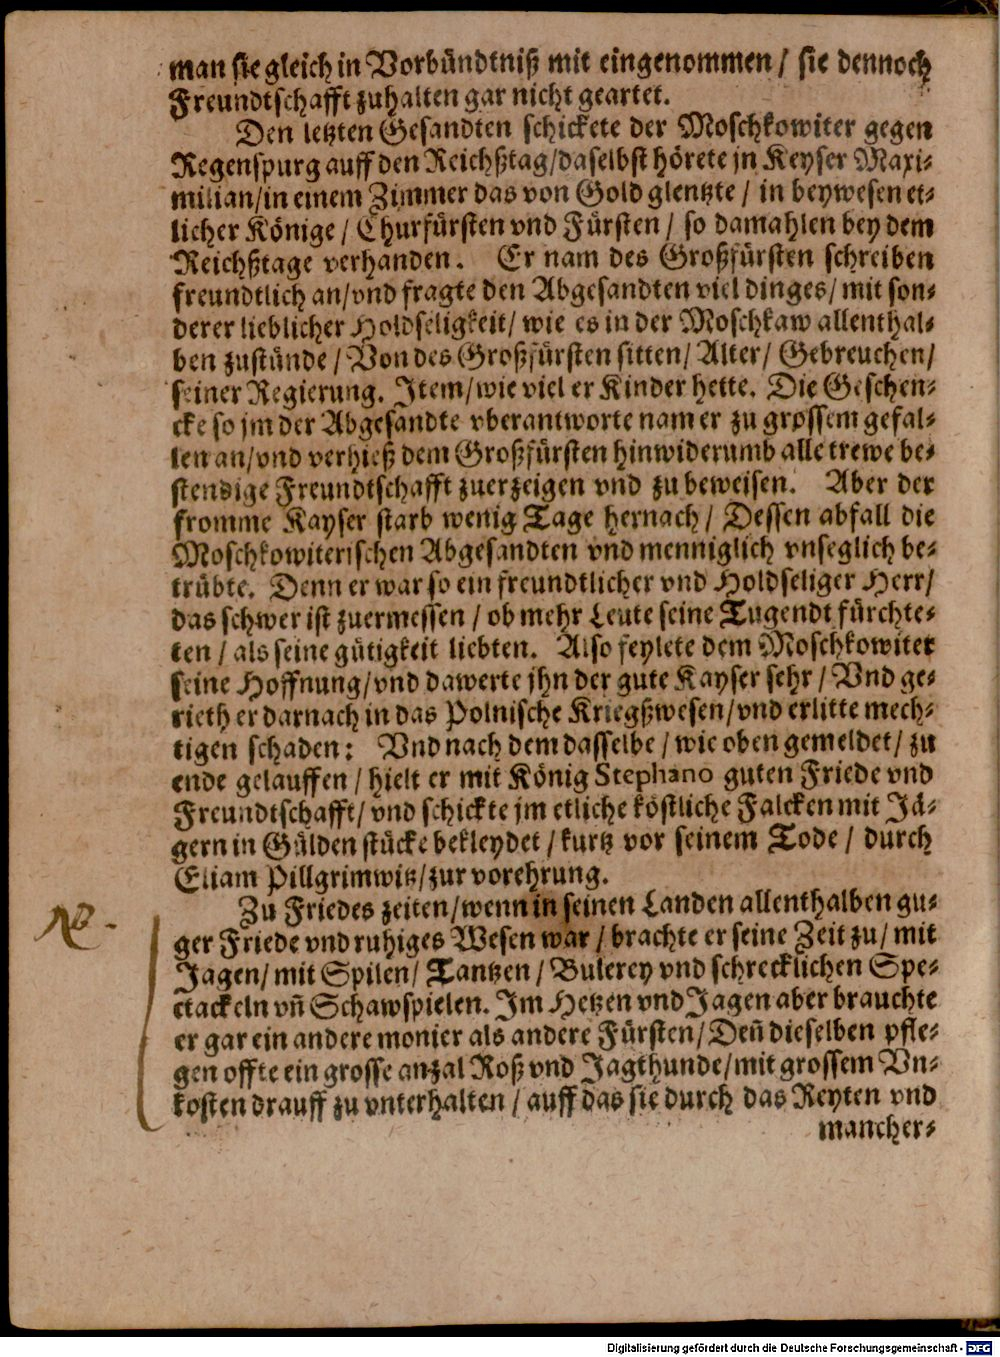 man sie gleich in Vorbündtniß mit eingenommen / sie dennoch
Freundtschafft zuhalten gar nicht geartet.
Den letzten Gesandten schickete der Moschkowiter gegen
Regenspurg auff den Reichßtag/daselbst hörete jn Keyser Maxi-
milian/in einem Zimmer das von Gold glentzte / in beywesen et-
licher Könige / Churfürsten vnd Fürsten / so damahlen bey dem
Reichßtage verhanden. Er nam des Großfürsten schreiben
freundtlich an/vnd fragte den Abgesandten viel dinges/ mit son-
derer lieblicher Holdseligkeit/ wie es in der Moschkaw allenthal-
ben zustünde / Von des Großfürsten sitten/ Alter/ Gebreuchen/
seiner Regierung. Item/wie viel er Kinder hette. Die Geschen-
cke so jm der Abgesandte vberantworte nam er zu grossem gefal-
len an/vnd verhieß dem Großfürsten hinwiderumb alle trewe be-
stendige Freundtschafft zuerzeigen vnd zu beweisen. Aber der
fromme Kayser starb wenig Tage hernach / Dessen abfall die
Moschkowiterischen Abgesandten vnd menniglich vnseglich be-
trübte. Denn er war so ein freundtlicher vnd Holdseliger Herr/
das schwer ist zuermessen / ob mehr Leute seine Tugendt fürchte-
ten / als seine gütigkeit liebten. Also feylete dem Moschkowiter
seine Hoffnung/vnd dawerte jhn der gute Kayser sehr / Vnd ge-
rieth er darnach in das Polnische Kriegßwesen/vnd erlitte mech-
tigen schaden: Vnd nach dem dasselbe / wie oben gemeldet/ zu
ende gelauffen / hielt er mit König Stephano guten Friede vnd
Freundtschafft/ vnd schickte jm etliche köstliche Falcken mit Jä-
gern in Gülden stücke bekleydet / kurtz vor seinem Tode / durch
Eliam Pillgrimwitz/zur vorehrung.
NB.
Zu Friedes zeiten/wenn in seinen Landen allenthalben gu-
ger Friede vnd ruhiges Wesen war / brachte er seine Zeit zu/ mit
Jagen/ mit Spilen/ Tantzen / Bulerey vnd schrecklichen Spe-
ctackeln vñ Schawspielen. Im Hetzen vnd Jagen aber brauchte
er gar ein andere monier als andere Fürsten/ Deñ dieselben pfle-
gen offte ein grosse anzal Roß vnd Jagthunde/mit grossem Vn-
kosten drauff zu vnterhalten / auff das sie durch das Reyten vnd
mancher-
Digitalisierung gefördert durch die Deutsche Forschungsgemeinschaft - DFG